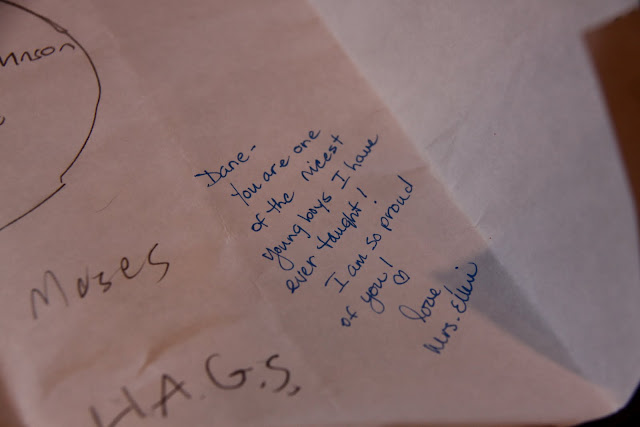 Dane-
You are one
of the nicest
young boys I have
ever taught!
I am so proud
of you! ♡
love
Mrs.
Moses
H.A.G.S.